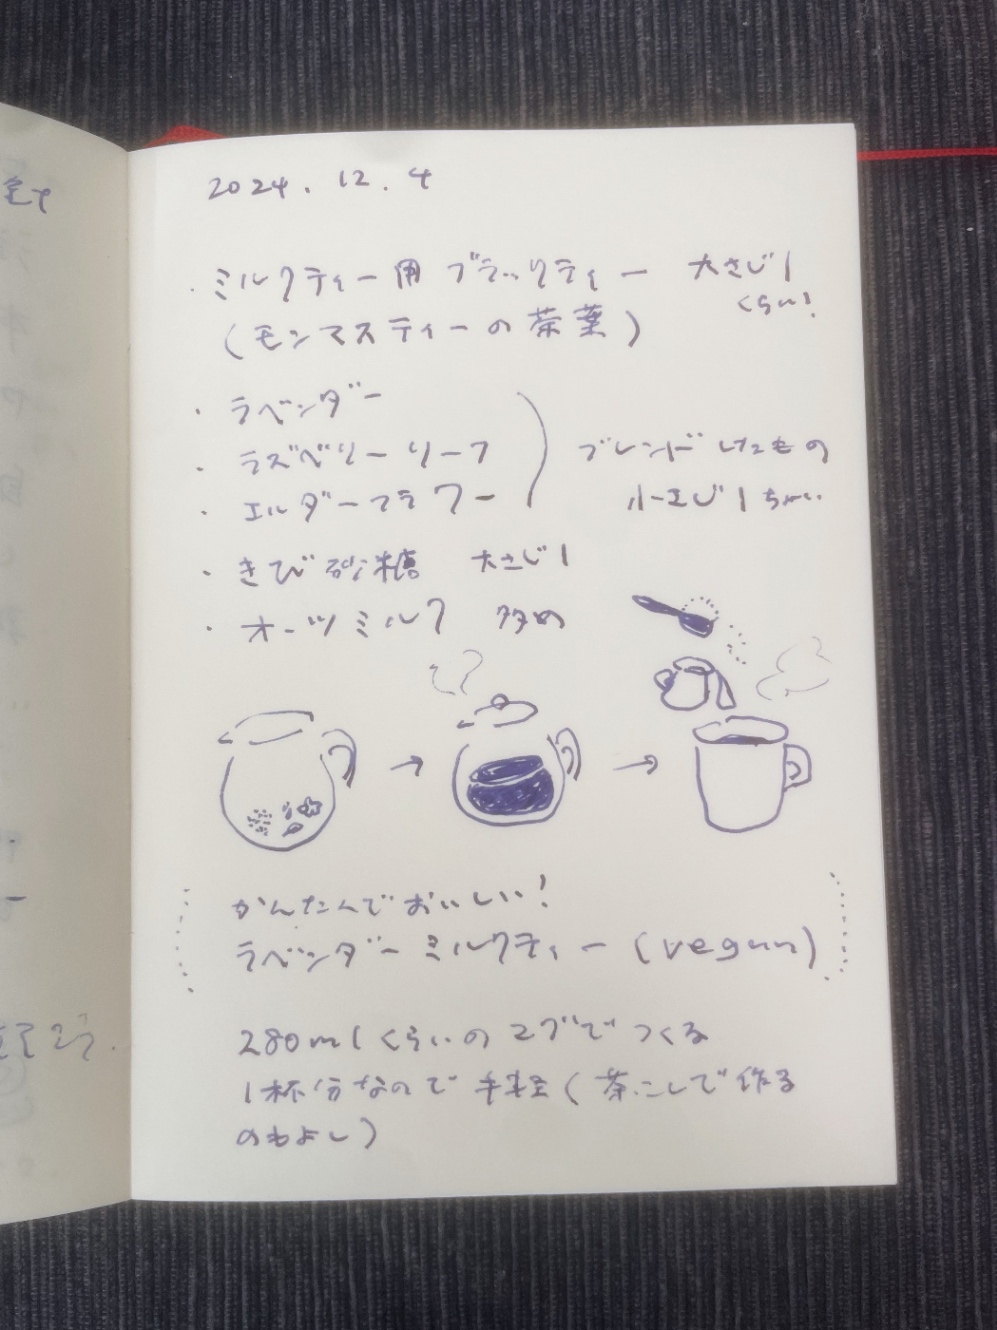 2024.12.4
・ミルクティー用 ブラックティー 大さじ1
くらい!
(モンマスティーの茶葉)
・ラベンダー
・ラズベリーリーフ
・エルダーフラワー
ブレンドしたもの
小さじ1ちょい
・きび砂糖 大さじ1
・オーツミルク 多め
かんたんでおいしい!
ラベンダーミルクティー(vegan)
280mlくらいのマグでつくる
1杯分なので手軽(茶こしで作る
のもよし)